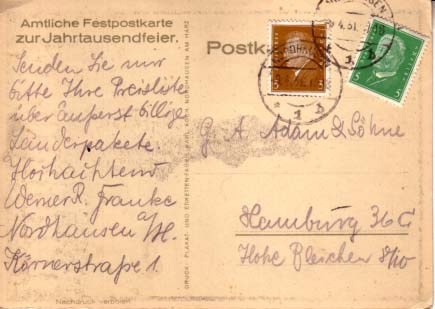 Amtliche Festpostkarte
zur Jahrtausendfeier.
Postk
Senden Sie mir
bitte Ihre Preisliste
über äußerst billige
Länderpakete.
Hochachtend
Werner R. Franke
Nordhausen a/H.
Körnerstraße 1.
G. A. Adam & Söhne
Hamburg 36
Hohe Bleichen 8/10
Nachdruck verboten
DRUCK: PLAKAT- UND ETIKETTEN-FABRIK KARL KOCH NORDHAUSEN AM HARZ
3
5
1